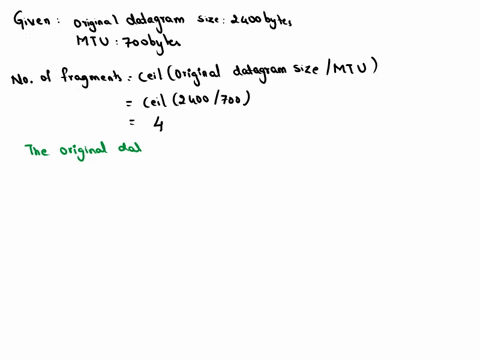 Given: Original datagram size: 2400bytes
MTU: 700bytes
No. of fragments = Ceil(Original datagram size/MTU)
= Ceil(2400/700)
= 4
The original dat